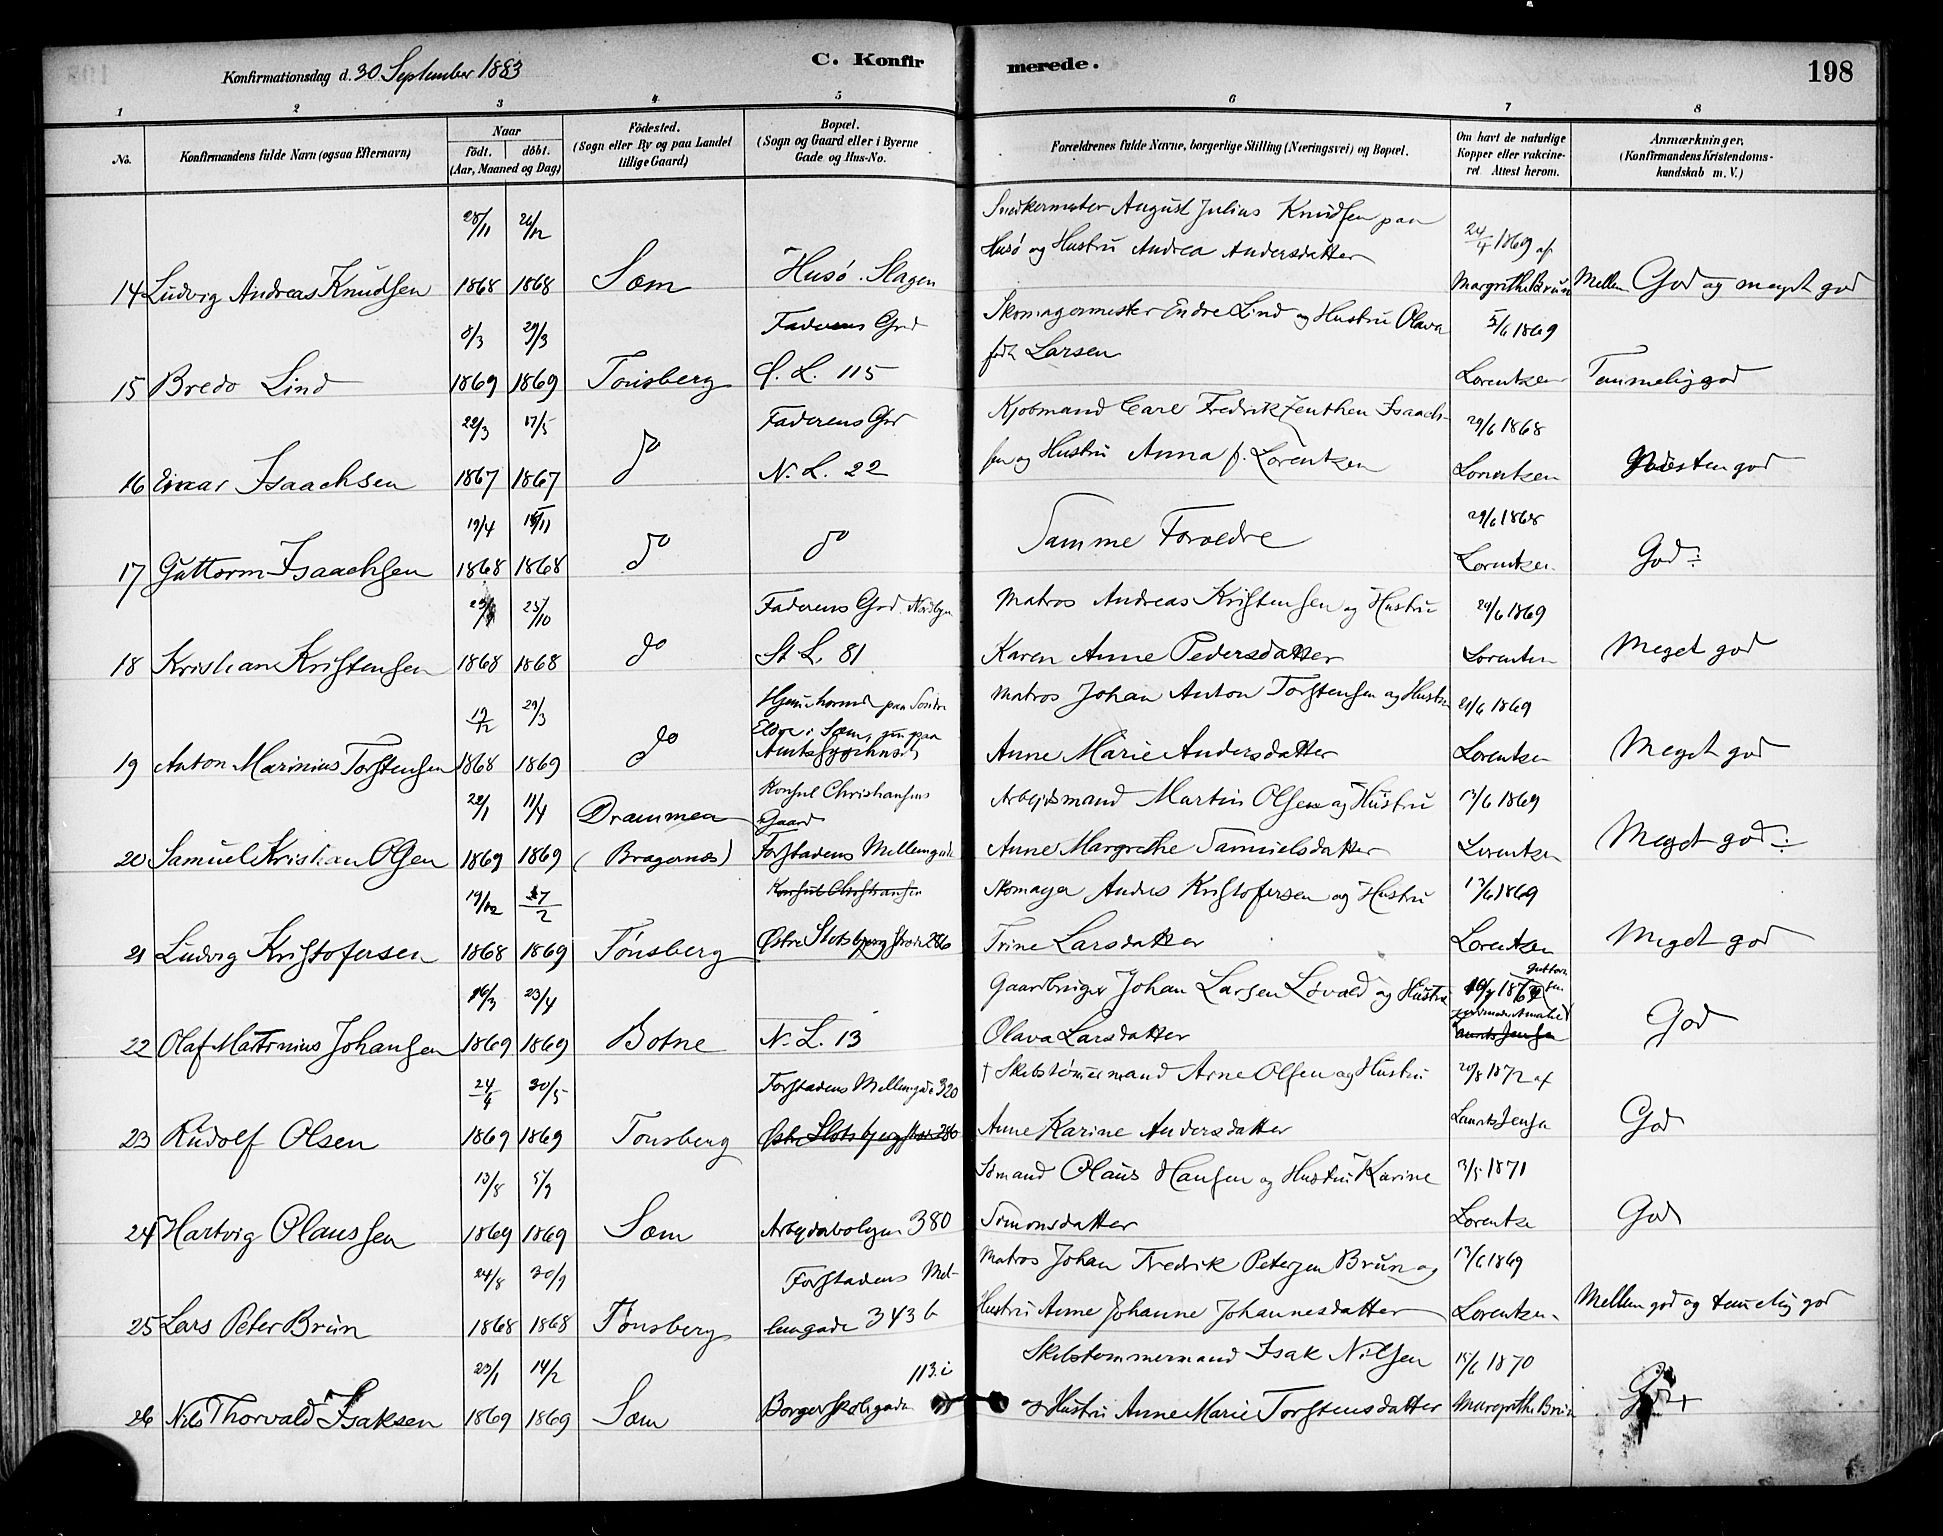 Konfirmationsdag d. 30 September 1883
C. Konfirmerede.
198
1 2 3 4 5 6 7 8
No.
Konfirmandens fulde Navn (ogsaa Efternavn)
Naar
født. døbt.
(Aar, Maaned og Dag)
Fødested.
(Sogn eller By og paa Landet
tillige Gaard)
Bopæl.
(Sogn og Gaard eller i Byerne
Gade og Hus-No.
Forældrenes fulde Navne, borgerlige Stilling (Næringsvei) og Bopæl.
Om havt de naturlige
Kopper eller vakcine-
ret. Attest herom.
Anmærkninger.
(Konfirmandens Kristendoms-
kundskab m. V.)
28/11 26/12 Snedkermester August Julius Knudsen paa 24/4 1869 af
Husø og Hustru Andrea Andersdatter
14 Ludvig Andreas Knudsen 1868 1868 Sæm Husø. Slagen Margrethe Brun Mellem God og meget god
8/3 29/3 Faderens Grd Skomagermester Endre Lind og Hustru Olava 5/6 1869
født Larsen
15 Bredo Lind 1869 1869 Tønsberg L. 115 Lorentzen Temmelig god
22/3 17/5 Faderens Grd Kjøbmand Carl Fredrik Zeuthen Isaach-
29/6 1868
sen og Hustru Anna f. Lorentzen
16 Einar Isaachsen 1867 1867 do N. L. 22 Lorentzen Næsten god
19/4 /11 Samme Forældre 29/6 1868
17 Guttorm Isaachsen 1868 1868 do do Lorentzen God÷
25/10 Faderens Grd. Nordbyen Matros Andreas Kristensen og Hustru 29/6 1869
18 Kristian Kristensen 1868 1868 do St L. 81 Karen Anne Pedersdatter Lorentzen Meget god
19/12 29/3 Hjemmehørende paa Søndre
Matros Johan Anton Torstensen og Hustru 21/6 1869
i Sæm,
19 Anton Marinius Torstensen 1868 1869 do Anne Marie Andersdatter Lorentzen Meget god
22/1 11/4 Drammen Konsul Christiansens Arbejdsmand Martin Olsen og Hustru 13/6 1869
Gaard
20 Samuel Kristian Olsen 1869 1869 (Bragernæs) Forstadens Mellemgade Anne Margrethe Samuelsdatter Lorentzen Meget god÷
19/12 17/2 Konsul Christiansen Skomager Andres Kristofersen og Hustru 13/6 1869
21 Ludvig Kristofersen 1868 1869 Tønsberg Østre Slotsbjerg 286 Trine Larsdatter Lorentzen Meget god
16/3 23/4 Gaardbruger Johan Larsen Løvald og Hustru
22 Olaf Martinius Johansen 1869 1869 Botne N. L. 13 Olava Larsdatter God
24/4 30/5 Forstadens Mellemgade 320 † Skibstømmermand Arne Olsen og Hustru 20/8 1872 af
23 Rudolf Olsen 1869 1869 Tønsberg Østre Slotsbjerg 286 Anne Karine Andersdatter Laurits Jensen God
13/8 5/9 Sømand Olaus Hansen og Hustru Karine 3/5 1871
24 Hartvig Olaussen 1869 1869 Sæm Arbejderboligen 380 Simonsdatter Lorentzen God
24/8 30/9 Forstadens Mel- Matros Johan Fredrik Petersen Brun og 13/6 1869
25 Lars Peter Brun 1868 1868 Tønsberg lemgade 343 b Hustru Anne Johanne Johannesdatter Lorentzen Mellem god og temmelig god
23/1 14/2 113 i Skibstømmermand Isak Nilsen 15/6 1870
26 Nils Thorvald Isaksen 1869 1869 Sæm Borgerskolegaden og Hustru Anne Marie Torstensdatter Margrethe Brun God+